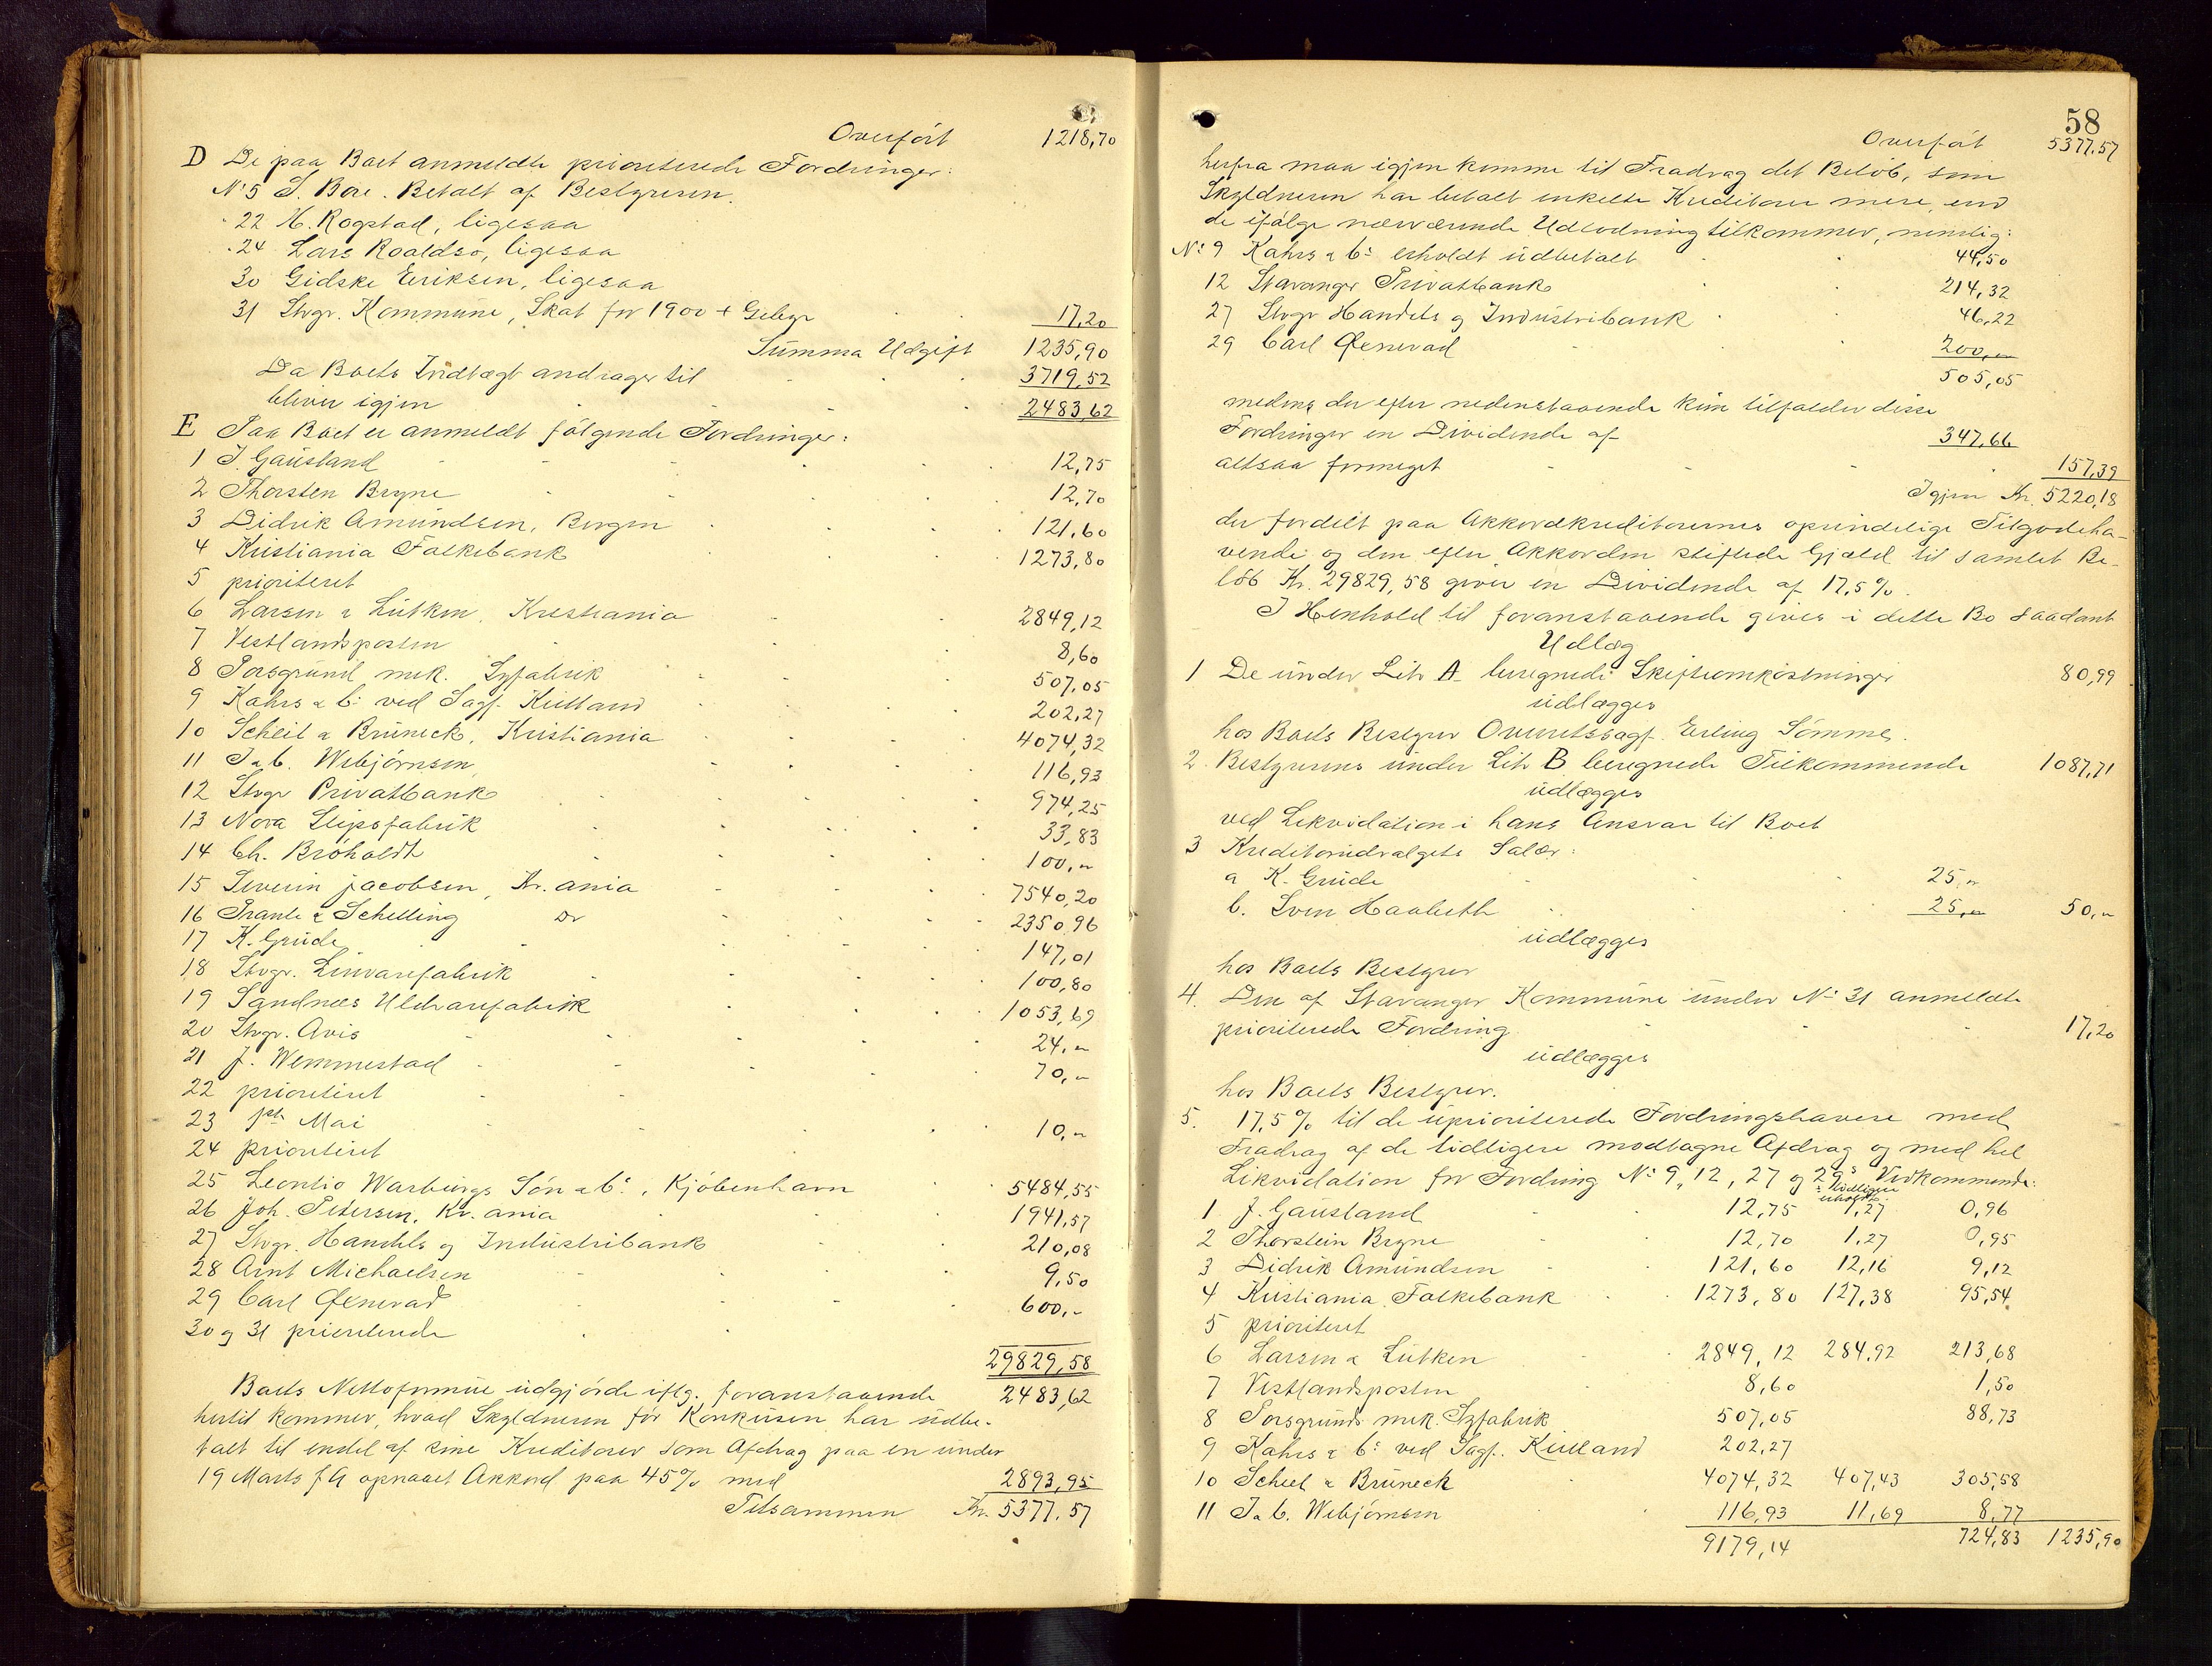 Overført 1218,70
D De paa Boet anmeldte prioriterede Fordringer:
No 5 S. Bore. Betalt af Bestyreren.
" 22 N. Rogstad, ligesaa
" 24 Lars Roaldsø, ligesaa
30 Gidske Eriksen, ligesaa
31 Stvgr. Kommune, Skat for 1900 + Gebyr 17,20
Summa Udgift 1235,90
Da Boets Indtægt andrager til 3719,52
bliver igjen 2483,62
E Paa Boet er anmeldt følgende Fordringer:
1 J. Gausland 12,75
2 Thorsten Bryne 12,70
3 Didrik Amundsen, Bergen 121,60
4 Kristiania Folkebank 1273,80
5 prioriteret
6 Larsen & Lütken, Kristiania 2849,12
7 Vestlandsposten 8,60
8 Porsgrund mek. Syfabrik 507,05
9 Kahrs & Co ved Sagf. Kielland 202,27
10 Scheel & Brüneck, Kristiania 4074,32
11 I & C. Webjørnsen, 116,93
12 Stvgr Privatbank 974,25
13 Nora Slipsfabrik 33,83
14 Ch. Brøholdt 100,"
15 Severin Jacobsen, Kr.ania 7540,20
16 Prante & Schelling Do 2350,96
17 K. Grude 147,01
18 Stvgr. Linvarefabrik 100,80
19 Sandnes Uldvarefabrik 1053,69
20 Stvgr. Avis 24,"
21 J. Wemmestad 70,"
22 prioriteret
23 1ste Mai 10,"
24 prioriteret
25 Leontio Warburgs Søn & Co, Kjøbenhavn 5484,55
26 Joh. Petersen, Kr.ania 1941,57
27 Stvgr. Handels og Industribank 210,08
28 Arnt Michaelsen 9,50
29 Carl Qvenerad 600,"
30 og 31 prioriterede
29829,58
Boets Nettoformue udgjørde iflg. foranstaaende 2483,62
hertil kommer, hvad Skyldneren før Konkursen har udbe-
talt til endel af sine Kreditorer som Afdrag paa en under
19 Marts f. A opnaaet Akkord paa 45% med 2893,95
Tilsammen Kr. 5377,57
58
Overført 5377,57
herfra maa igjen komme til Fradrag det Beløb, som
Skyldneren har betalt enkelte Kreditorer mere, end
de ifølge nærværende Udlodning tilkommer, nemlig:
No 9 Kahrs & Co erholdt udbetalt 44,50
12 Stavanger Privatbank 214,32
27 Stvgr Handels og Industribank 46,22
29 Carl Qvenerad 200,"
505,05
medens der efter nedenstaaende kun tilfalder disse
Fordringer en Dividende af 347,66
altsaa formeget 157,39
Igjen Kr. 5220,18
der fordelt paa Akkordkreditorernes oprindelige Tilgodeha-
vende og den efter Akkorden stiftede Gjæld til samlet Be-
løb Kr. 29829,58 giver en Dividende af 17,5%.
I Henhold til foranstaaende gives i dette Bo saadant
Udlæg
1 De under Litr A beregnede Skifteomkostninger 80,99
udlægges
hos Boets Bestyrer Overretssagf. Erling Sømme.
2. Bestyrerens under Litr B beregnede Tilkommende 1087,71
udlægges
ved Likvidation i hans Ansvar til Boet
3 Kreditorudvalgets Salær:
a K. Grude 25,"
b. Sven Haabeth 25," 50,"
udlægges
hos Boets Bestyrer
4. Den af Stavanger Kommune under No 31 anmeldte
prioriterede Fordring 17,20
udlægges
hos Boets Bestyrer.
5. 17,5% til de uprioriterede Fordringshavere med
Fradrag af de tidligere modtagne Afdrag og med hel
Likvidation for Fordring No 9, 12, 27 og 29s Vedkommende:
tidligere
erholdt
1 J. Gausland 12,75 1,27 0,96
2 Thorstein Bryne 12,70 1,27 0,95
3 Didrik Amundsen 121,60 12,16 9,12
4 Kristiania Folkebank 1273,80 127,38 95,54
5 prioriteret
6 Larsen & Lütken 2849,12 284,92 213,68
7 Vestlandsposten 8,60 1,50
8 Porsgrunds mek. Syfabrik 507,05 88,73
9 Kahrs & Co ved Sagf. Kielland 202,27
10 Scheel & Brüneck 4074,32 407,43 305,58
11 I & C. Webjørnsen 116,93 11,69 8,77
9179,14 724,83 1235,90